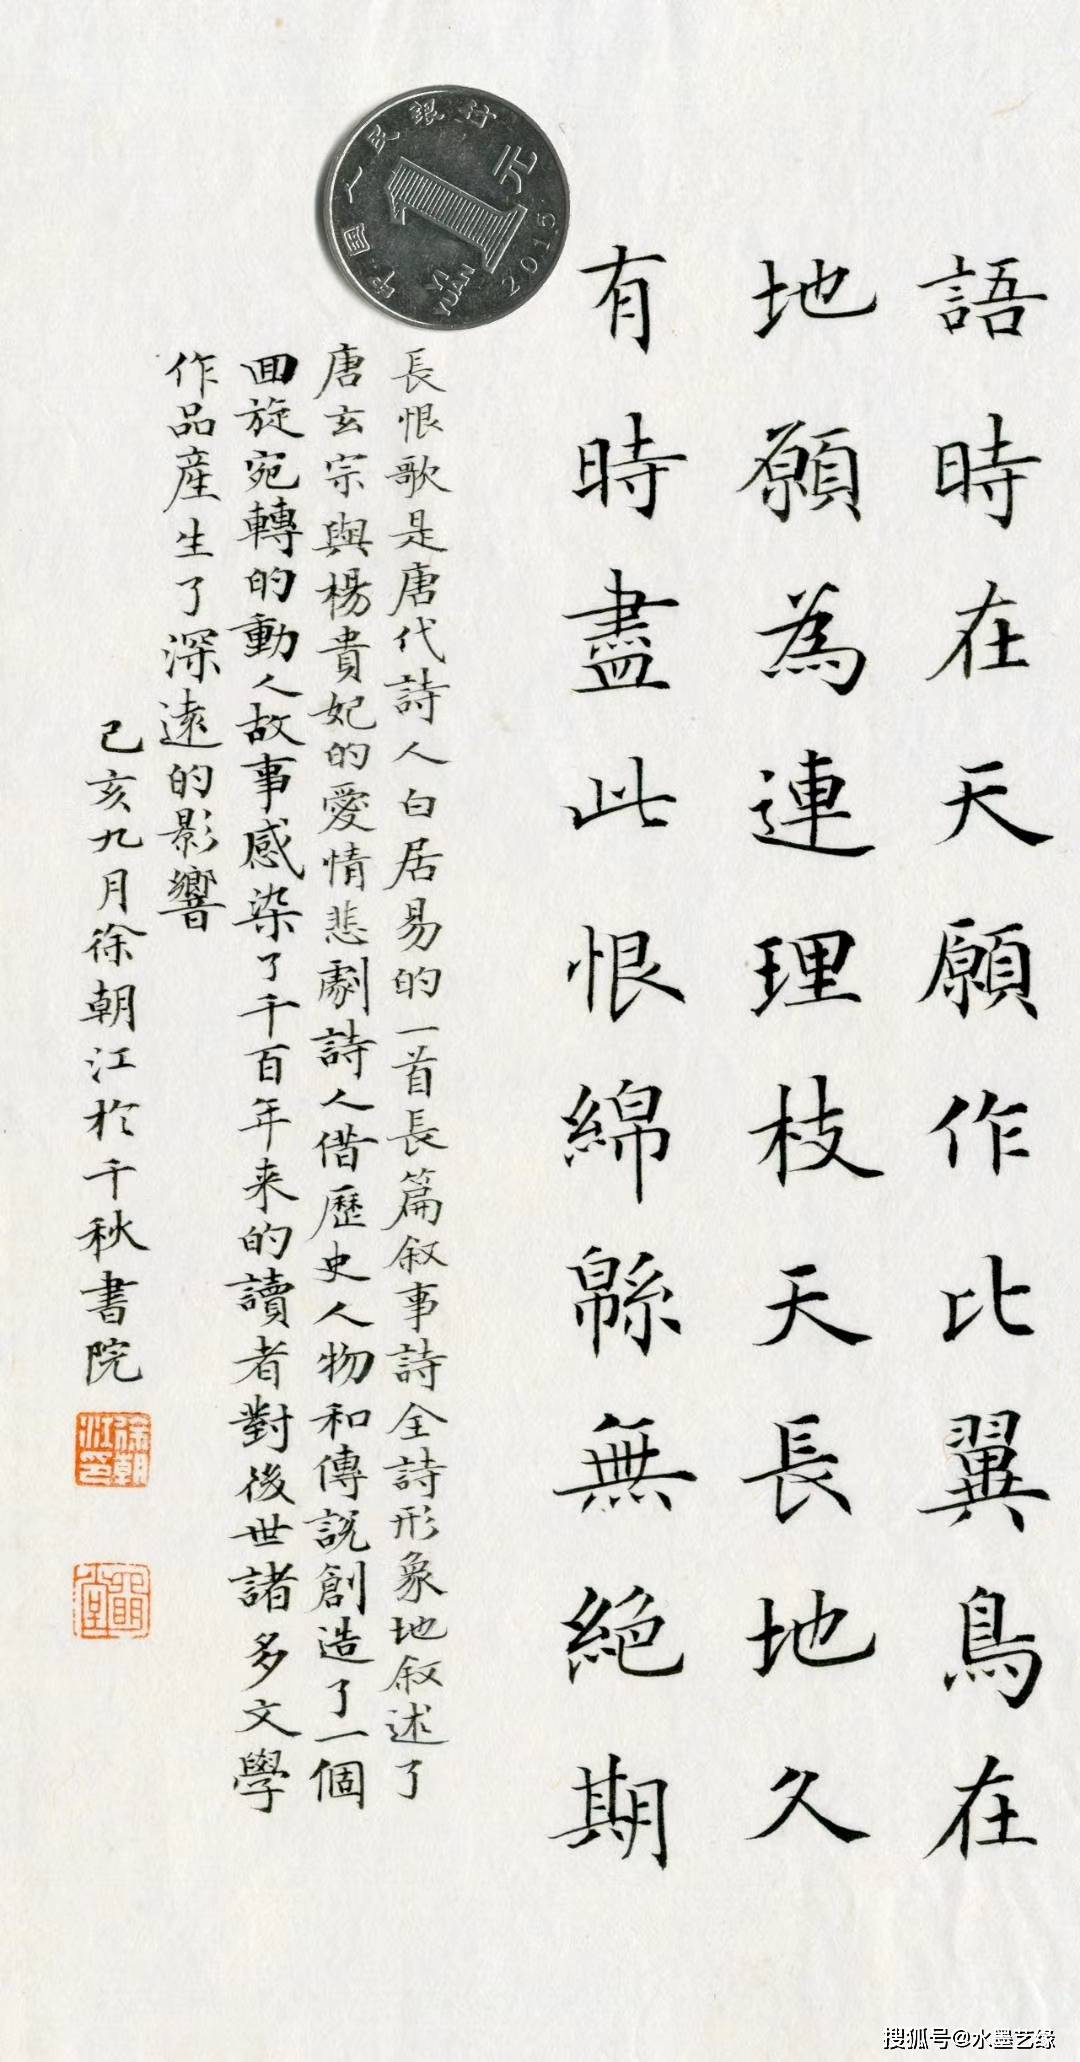 語時在天願作比翼鳥在
地願為連理枝天長地久
有時盡此恨綿緜無絶期
中国人民银行
1元
YI YUAN
2015
長恨歌是唐代詩人白居易的一首長篇叙事詩全詩形象地叙述了
唐玄宗與楊貴妃的愛情悲劇詩人借歷史人物和傳説創造了一個
回旋宛轉的動人故事感染了千百年来的讀者對後世諸多文學
作品産生了深遠的影響
己亥九月徐朝江於千秋書院
徐朝江印
搜狐号@水墨艺缘